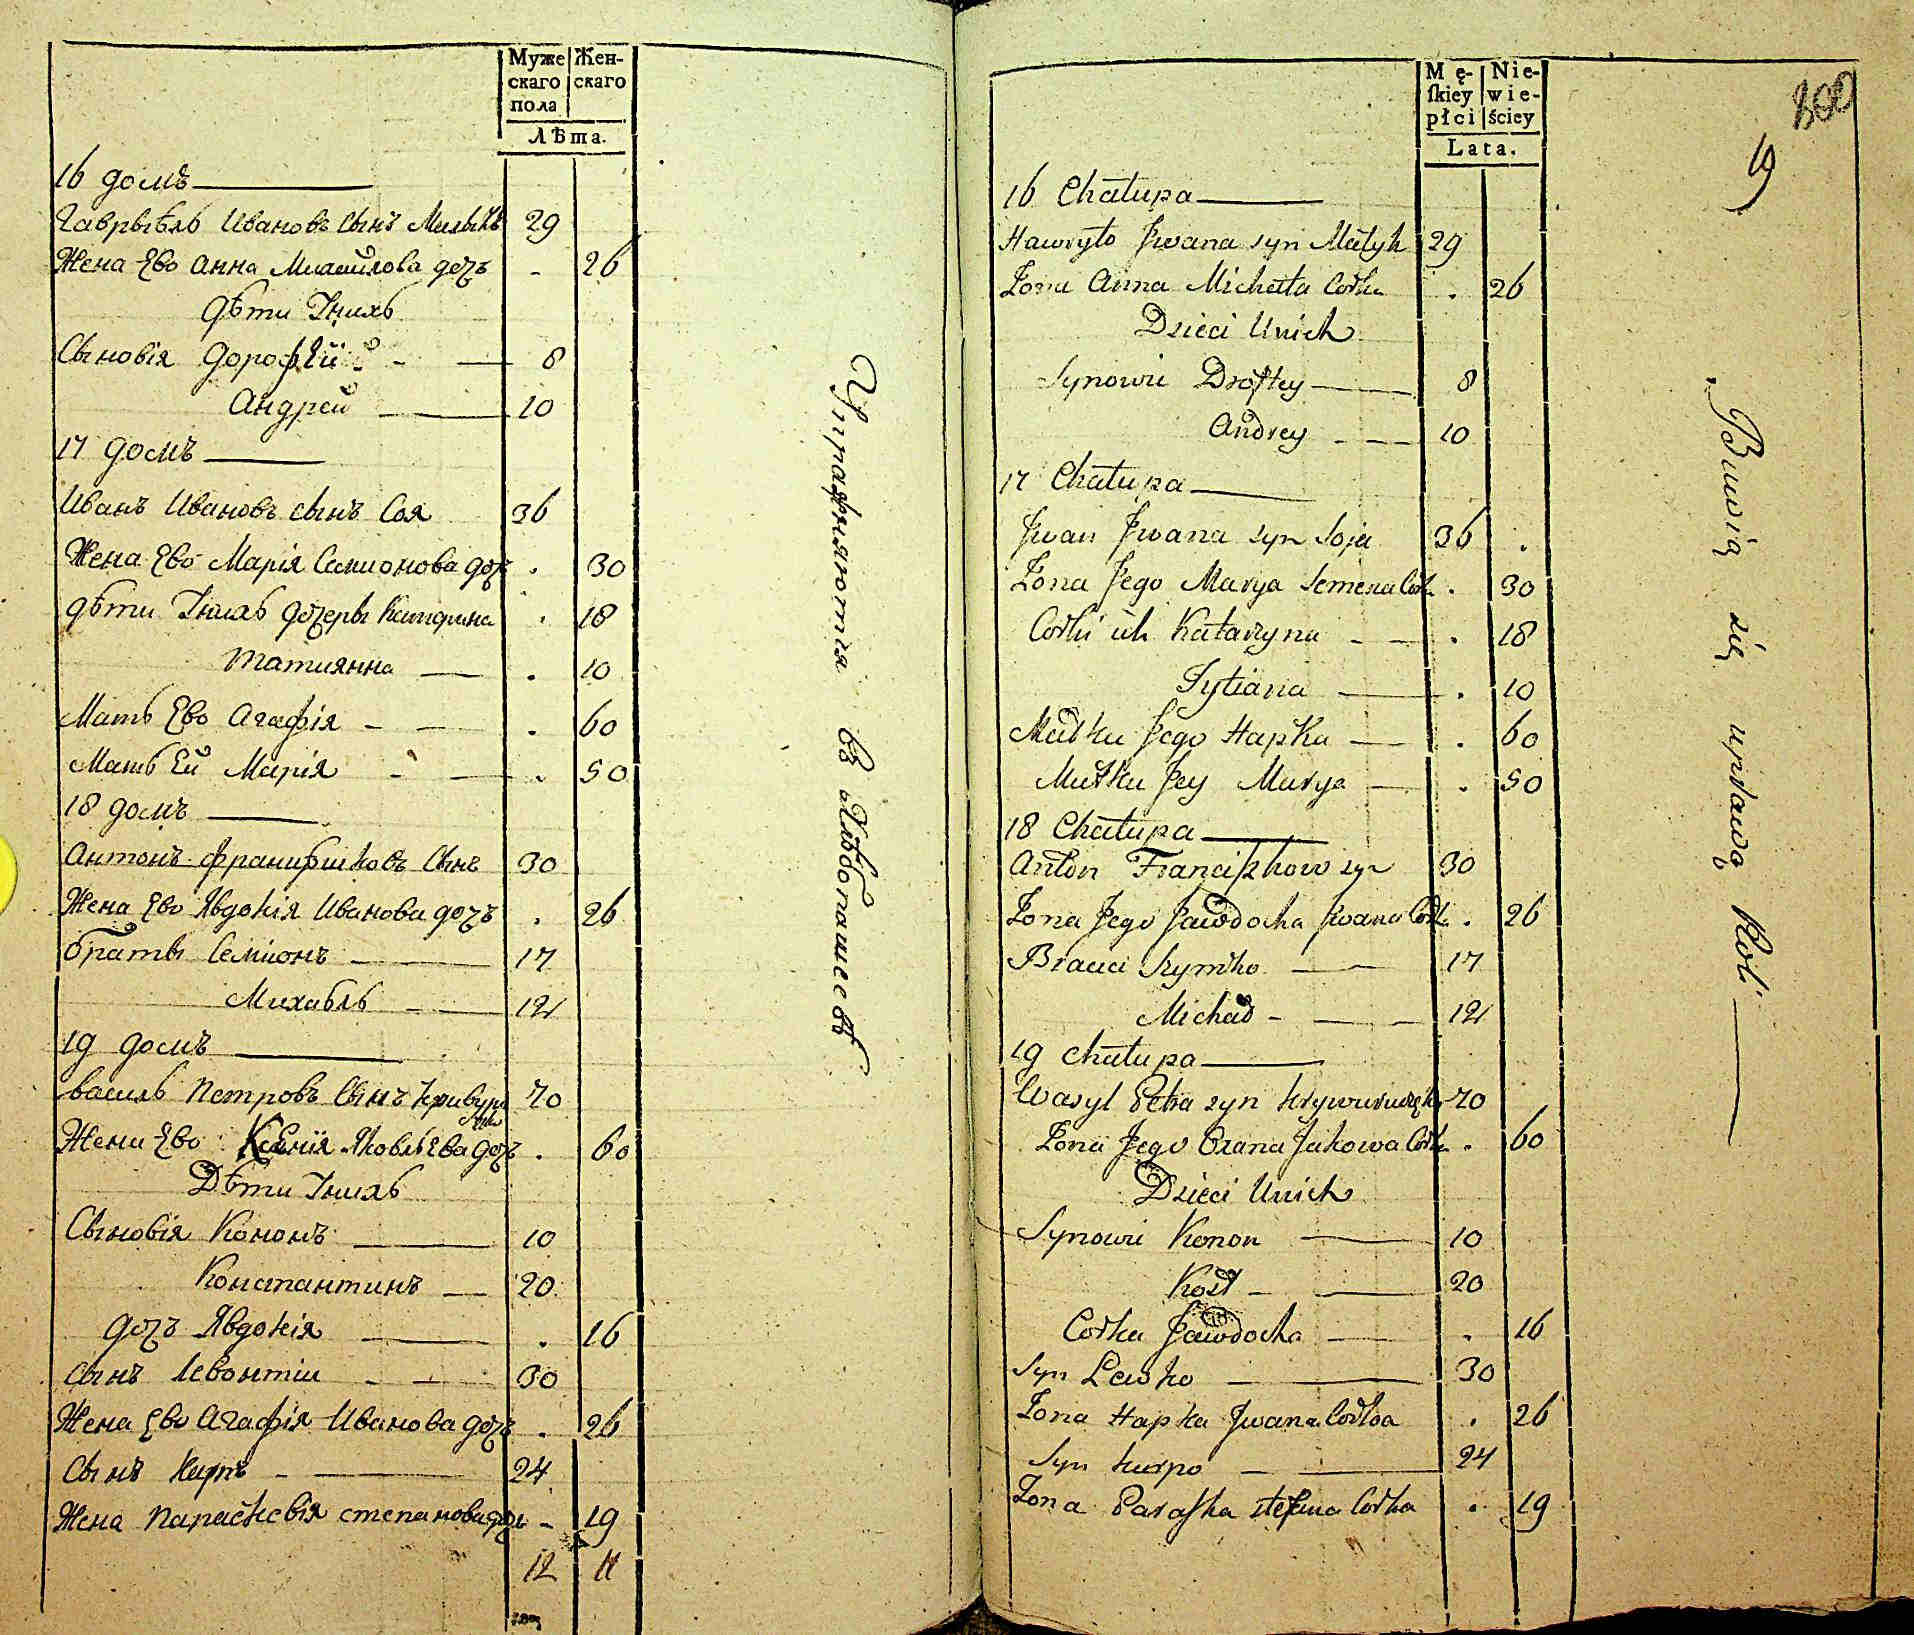 Муже
скаго
пола
Жен-
скаго
Лѣта.
16 домъ
Гаврыѣль Ивановъ сынъ 29
Жена Ево Анна Михайлова дочъ - 26
Дѣти Ӯнихъ
Сыновія Дорофѣй - 8
Андрей 10
17 домъ
Иванъ Ивановъ сынъ Соя 36
Жена Ево Марія Семионова доч . 30
дѣти Унихъ дочеры Катерина . 18
Татиянна . 10
Мать Ево Агафія - . 60
Мать Ей Марія - . 50
18 домъ
Антонъ францишковъ Сынъ 30
Жена Ево Явдокія Иванова дочъ . 26
братьи Семионъ 17
Михаѣль 12
19 домъ
василь Петровъ Сынъ 70
Жена Ево Ксенія Яковлѣва дочъ . 60
Дѣти Унихъ
Сыновія Кононъ 10
Константинъ 20
дочъ Явдокія . 16
сынъ Левонтіи 30
Жена Ево Агафія Иванова дочъ . 26
Сынъ Карпъ - 24
Жена Параскевія степанова дочь - 19
12 11
Упражняются въ хлѣбопашествѣ
Mę-
ſkiey
płci
Nie-
wie-
ściey
Lata.
300
19
16 Chałupa
Hawryło Jwana syn Małyk 29
Żona Anna Michała Corka . 26
Dzieci Unich
Synowie 8
Andrey 10
17 Chałupa
Jwan Jwana syn Soja 36 .
Żona Jego Marya Semena Cork . 30
Corki ich Katarzyna . 18
Tytiana . 10
Matka Jego Hapka . 60
Matka Jey Marya . 50
18 Chałupa
Anton Franciſzkow syn 30
Żona Jego Jawdocha Jwana Cork . 26
Bracia Symko 17
Michał 12
19 Chałupa
Wasyl Petra syn 70
Żona Jego Oxana Jakowa Cork . 60
Dzieci Unich
Synowie Konon 10
Kost 20
Corka Jawdocha . 16
Syn Lewko 30
Żona Hapka Jwana Corka . 26
Syn Karpo 24
Żona Paraſka stefana Corka . 19
Bawią się uprawą Roli